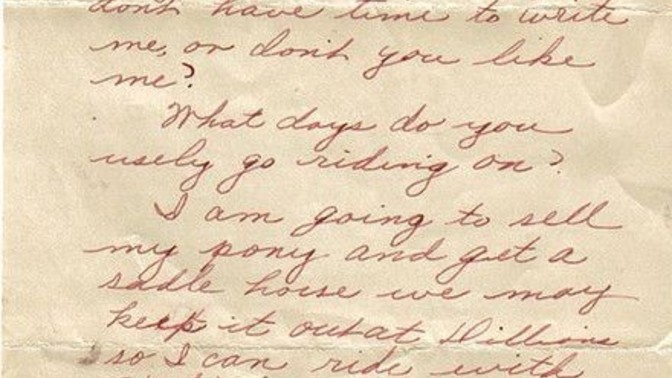 dont have time to write
me, or dont you like
me?
What days do you
usely go riding on?
I am going to sell
my pony and get a
sadle horse we may
keep it out at Dillions
so I can ride with